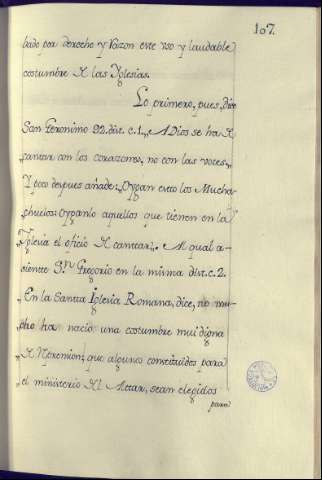 107.
bado por derecho y razon este uso y laudable
costumbre de las Iglesias.
Lo primero, pues, dice
San Geronimo 92. dist. c. 1. „ A Dios se ha de
cantar con los corazones, no con las voces„
Y poco despues añade: Oygan esto los Mucha-
chuelos: Oyganlo aquellos que tienen en la
Iglesia el oficio de cantar„. Al qual a-
siente Sn. Gregorio en la misma dist. c. 2.
„En la Santa Iglesia Romana, dice, no mu-
cho ha nació una costumbre mui digna
„de reprension; que algunos constituidos para
„el ministerio del Altar, sean elegidos
para